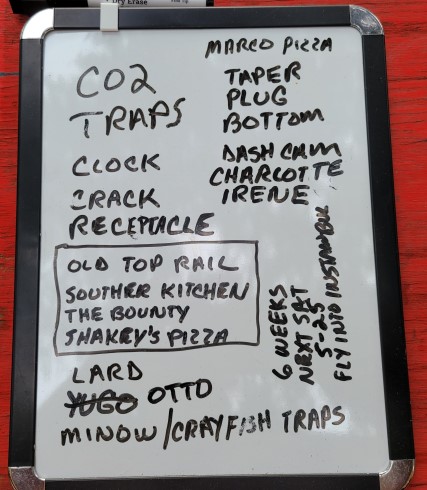 Dry Erase
CO2
TRAPS
CLOCK
CRACK
RECEPTACLE
MARCO PIZZA
TAPER
PLUG
BOTTOM
DASH CAM
CHARLOTTE
IRENE
OLD TOP RAIL
SOUTHER KITCHEN
THE BOUNTY
SHAKEY'S PIZZA
6 WEEKS
NEXT SAT
5-25
FLY INTO INSTANBUL
LARD
YUGO OTTO
MINOW/CRAYFISH TRAPS